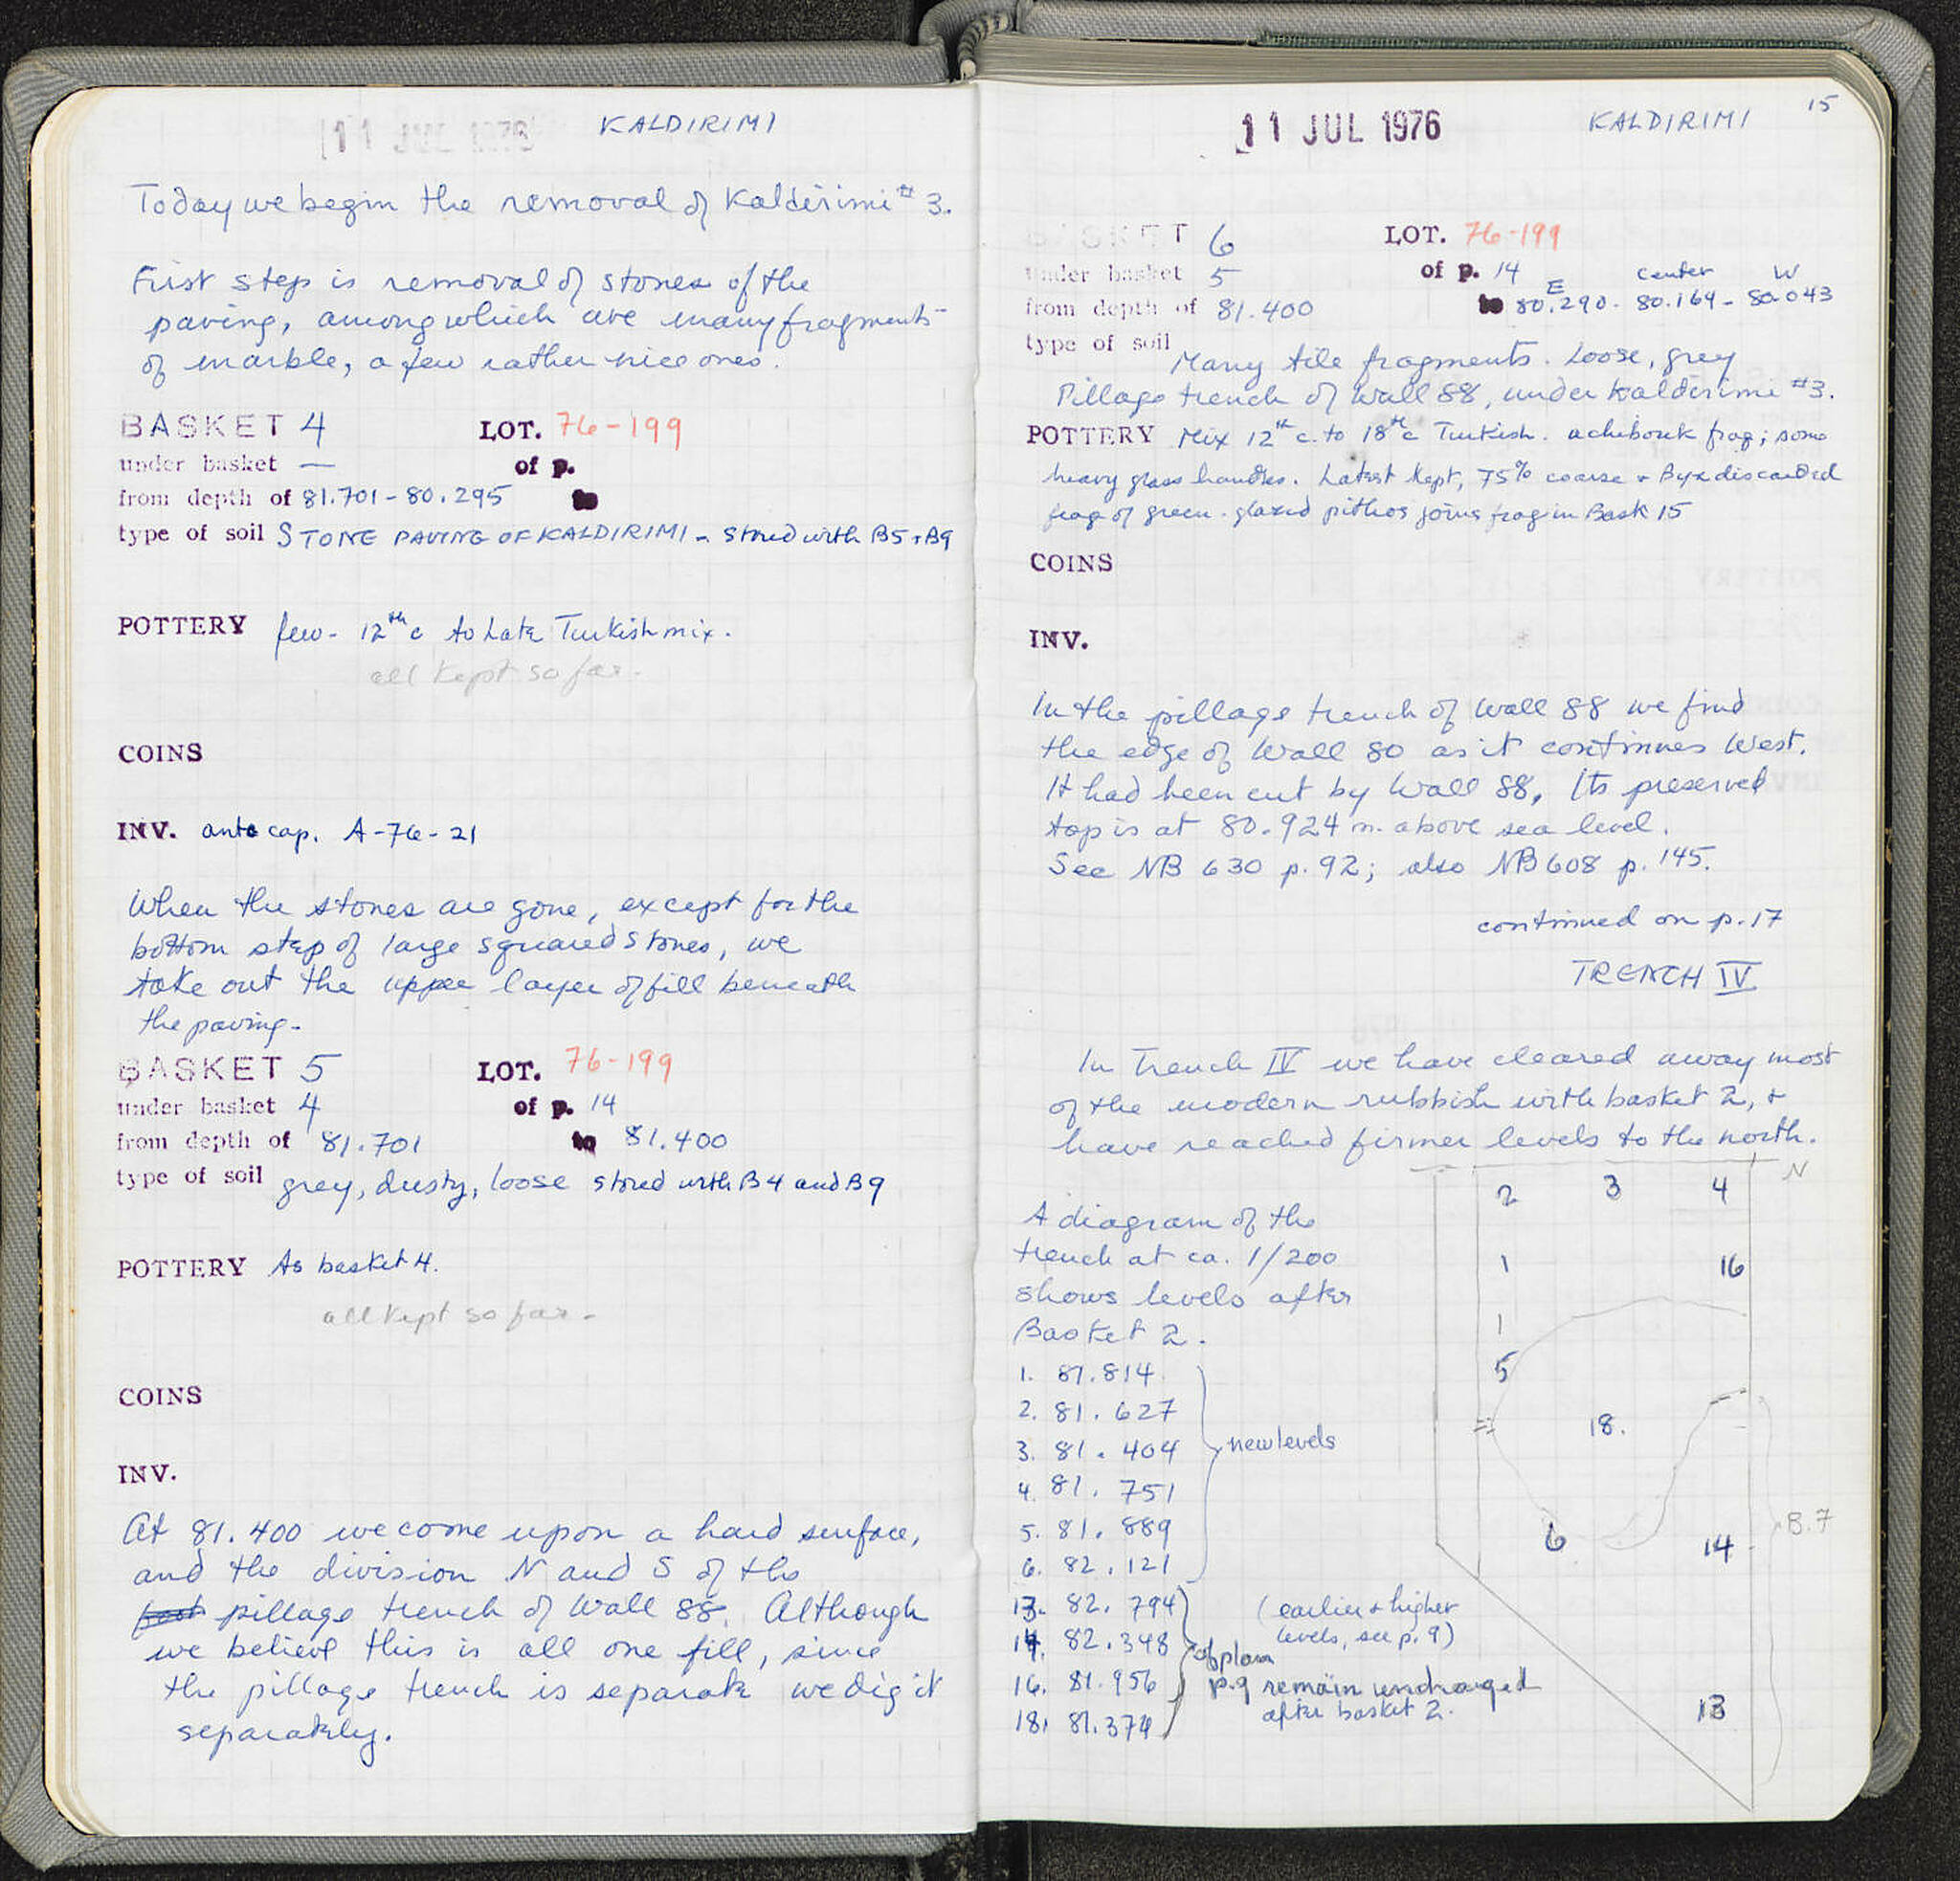 11 JUL 1976 KALDIRIMI
Today we begin the removal of Kaldirimi #3.
First step is removal of stones of the
paving, among which are many fragments
of marble, a few rather nice ones.
BASKET 4 LOT. 76-199
under basket — of p.
from depth of 81.701-80.295 to
type of soil STONE PAVING OF KALDIRIMI - stored with B5+B9
POTTERY few - 12th c to Late Turkish mix.
all kept so far.
COINS
INV. ante cap. A-76-21
When the stones are gone, except for the
bottom step of large squared stones, we
take out the upper layer of fill beneath
the paving.
BASKET 5 LOT. 76-199
under basket 4 of p. 14
from depth of 81.701 to 81.400
type of soil grey, dusty, loose stored with B4 and B9
POTTERY As basket 4.
all kept so far.
COINS
INV.
At 81.400 we come upon a hard surface,
and the division N and S of the
pillage trench of Wall 88. Although
we believe this is all one fill, since
the pillage trench is separate we dig it
separately.
15
11 JUL 1976 KALDIRIMI
BASKET 6 LOT. 76-199
under basket 5 of p. 14
E center W
from depth of 81.400 to 80.290 - 80.164 - 80.043
type of soil Many tile fragments. Loose, grey
Pillage trench of Wall 88, under Kaldirimi #3.
POTTERY Mix 12th c. to 18th c Turkish. a chibouk frag; some
heavy glass handles. Latest kept, 75% coarse + Byz discarded
frag of green-glazed pithos joins frag in Bask 15
COINS
INV.
In the pillage trench of Wall 88 we find
the edge of Wall 80 as it continues West.
It had been cut by Wall 88. Its preserved
top is at 80.924 m. above sea level.
See NB 630 p. 92; also NB 608 p. 145.
continued on p. 17
TRENCH IV
In Trench IV we have cleared away most
of the modern rubbish with basket 2, +
have reached firmer levels to the north.
A diagram of the
trench at ca. 1/200
shows levels after
Basket 2.
1. 81.814
2. 81.627
3. 81.404
4. 81.751
5. 81.889
6. 82.121
new levels
13. 82.794
14. 82.348
16. 81.956
18. 81.374
(earlier + higher
levels, see p. 9)
of plan
p.9 remain unchanged
after basket 2.
N
2 3 4
1 16
1
5
18.
6 14
B.7
13